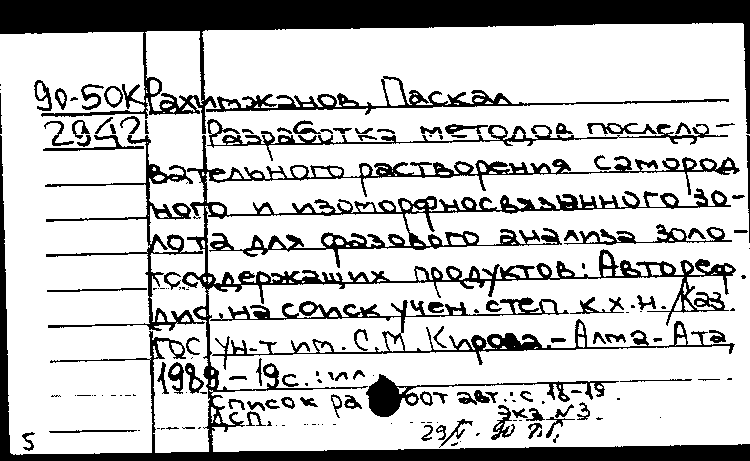 90-50К Рахимжанов, Паскал.
2942 Разработка методов последо-
вательного растворения самород
ного и изоморфносвязанного зо-
лота для фазового анализа золо-
тосодержащих продуктов: Автореф.
дис. на соиск. учен. степ. к.х.н. / Каз
ГОС ун-т им. С.М. Кирова. - Алма-Ата,
1989. - 19 с. : ил
Список работ авт.: с. 18-19.
ДСП. Экз. N 3.
5 29/V. 90